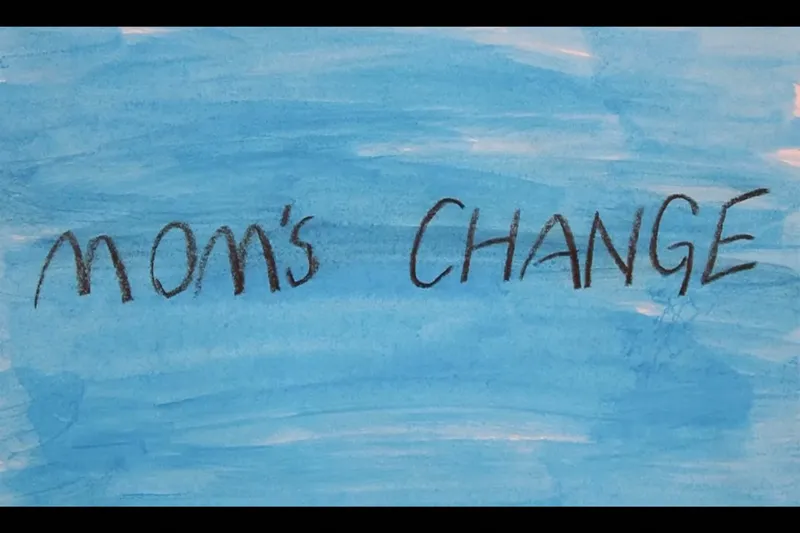 MOM'S CHANGE